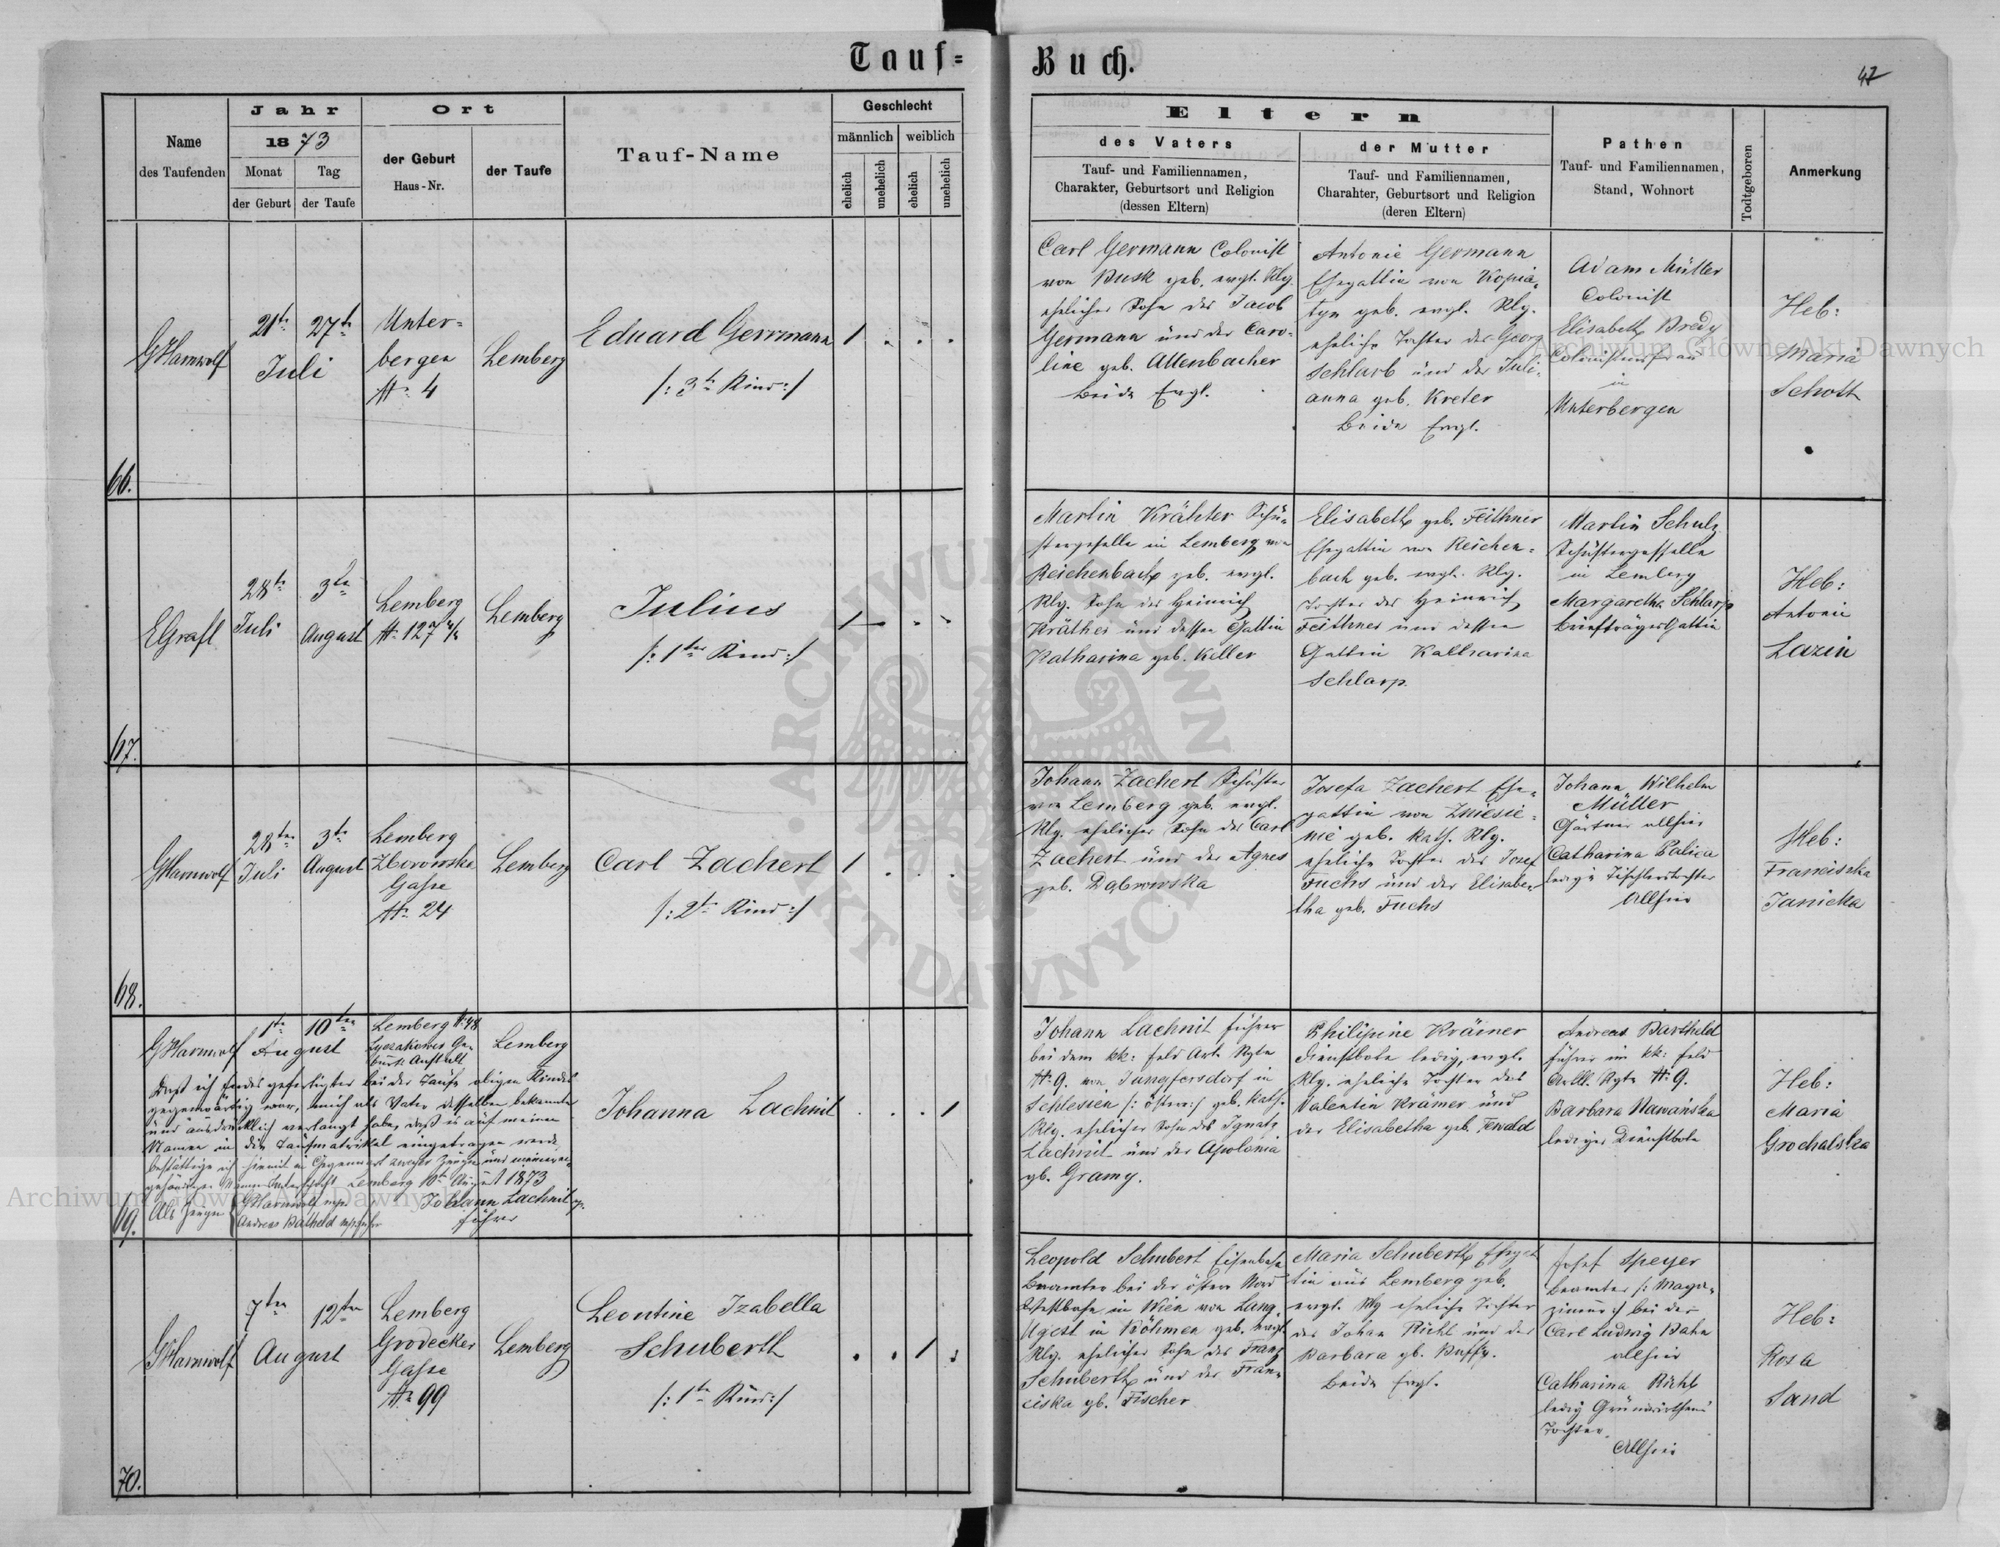 Tauf-Buch.
47
Name des Taufenden
Jahr
1873
Monat
Tag
der Geburt
der Taufe
Ort
der Geburt
Haus-Nr.
der Taufe
Tauf-Name
Geschlecht
männlich
weiblich
ehelich
unehelich
ehelich
unehelich
Eltern
des Vaters
Tauf- und Familiennamen,
Charakter, Geburtsort und Religion
(dessen Eltern)
der Mutter
Tauf- und Familiennamen,
Charakter, Geburtsort und Religion
(deren Eltern)
Pathen
Tauf- und Familiennamen,
Stand, Wohnort
Todtgeboren
Anmerkung
66.
GHarnwolf
21te
27te
Juli
Unter-
bergen
No 4
Lemberg
Eduard Gerrmann
/: 3te Kind :/
1
Carl Germann Colonist
von Busk geb. evgl. Rlg.
ehelicher Sohn des Jacob
Germann und der Caro-
line geb. Allenbacher
beide Evgl.
Antonie Germann
Ehegattin von Kopia-
tyn geb. evgl. Rlg.
eheliche Tochter des Georg
Schlarb und der Juli-
anna geb. Kreter
beide Evgl.
Adam Müller
Colonist
Elisabeth Bredy
Colonistensfrau
in
Unterbergen
Heb:
Maria
Schott
67.
EGrafl
28te
Juli
3te
August
Lemberg
No 127 4/4
Lemberg
Julius
/: 1tes Kind :/
1
Martin Krähter Schu-
stergeselle in Lemberg von
Reichenbach geb. evgl.
Rlg. Sohn des Heinrich
Kräther und dessen Gattin
Katharina geb. Killer
Elisabeth geb. Feithner
Ehegattin von Reichen-
bach geb. evgl. Rlg.
Tochter des Heinrich
Feithner und dessen
Gattin Katharina
Schlarp
Martin Schulz
Schustergesselle
in Lemberg
Margaretha Schlarp
Briefträgers Gattin
Heb:
Antonie
Lazin
68.
GHarnwolf
28ten
Juli
3te
August
Lemberg
Zborowska
Gasse
No 24
Lemberg
Carl Zachert
/: 2te Kind :/
1
Johann Zachert Schuster
von Lemberg geb. evgl.
Rlg. ehelicher Sohn des Carl
Zachert und der Agnes
geb. Dąbrowska
Josefa Zachert Ehe-
gattin von Zniesie-
nie geb. kath. Rlg.
eheliche Tochter des Josef
Fuchs und der Elisabe-
tha geb. Fuchs
Johann Wilhelm
Müller
Gärtner allhier
Catharina Palica
ledige Tischlerstochter
Allhier
Heb:
Franciszka
Janicka
69.
GHarnwolf
1te
10ten
August
Lemberg No 48
Lyczakower Ge-
burts Anstalt
Lemberg
Daß ich Endesgefertigter bei der Taufe obigen Kindes
gegenwärtig war, mich als Vater desselben bekannte
und ausdrücklich verlangt habe, daß es auf meinen
Namen in die Taufmatrikel eingetragen werde
bestättige ich hiermit in Gegenwart zweier Zeugen und meiner ei-
genhändigen Namens Unterschrift Lemberg 10te August 1873
Als Zeugen
GHarnwolf mp
Andreas Batheld mp Führer
Johann Lachnit
Führer
Johanna Lachnit
1
Johann Lachnit Führer
bei dem kk: Feld Art. Rgte
No 9. von Jungfersdorf in
Schlesien /: östere :/ geb. kath.
Rlg. ehelicher Sohn des Ignatz
Lachnit und der Apolonia
gb. Gramy.
Philipine Krämer
Dienstbote ledig, evgl.
Rlg. eheliche Tochter des
Valentin Krämer und
der Elisabetha geb. Tewald
Andreas Bartheld
Führer im kk: Feld
Artll. Rgte No 9.
Barbara Nawańska
lediger Dienstbote
Heb:
Maria
Grochalska
70.
GHarnwolf
7ten
12ten
August
Lemberg
Grodecker
Gasse
No 99
Lemberg
Leontine Izabella
Schuberth
/: 1te Kind :/
1
Leopold Schubert Eisenbahn
Beamter bei der österr Nord
Westbahn in Wien von Lang-
Ugest in Böhmen geb. evgl.
Rlg. ehelicher Sohn des Franz
Schuberth und der Fran-
ciska gb. Fischer
Maria Schuberth Ehegat
tin aus Lemberg geb.
evgl. Rlg eheliche Tochter
des Johan Richl und der
Barbara gb.
beide Evgl.
Josef Speyer
Beamter /: Maga-
zineur :/ bei der
Carl Ludwig Bahn
allhier
Catharina Richl
ledig Grundwirthens
Tochter.
Allhier
Heb:
Rosa
Sand
Archiwum Główne Akt Dawnych
Archiwum Główne Akt Dawnych
ARCHIWUM GŁÓWNE AKT DAWNYCH